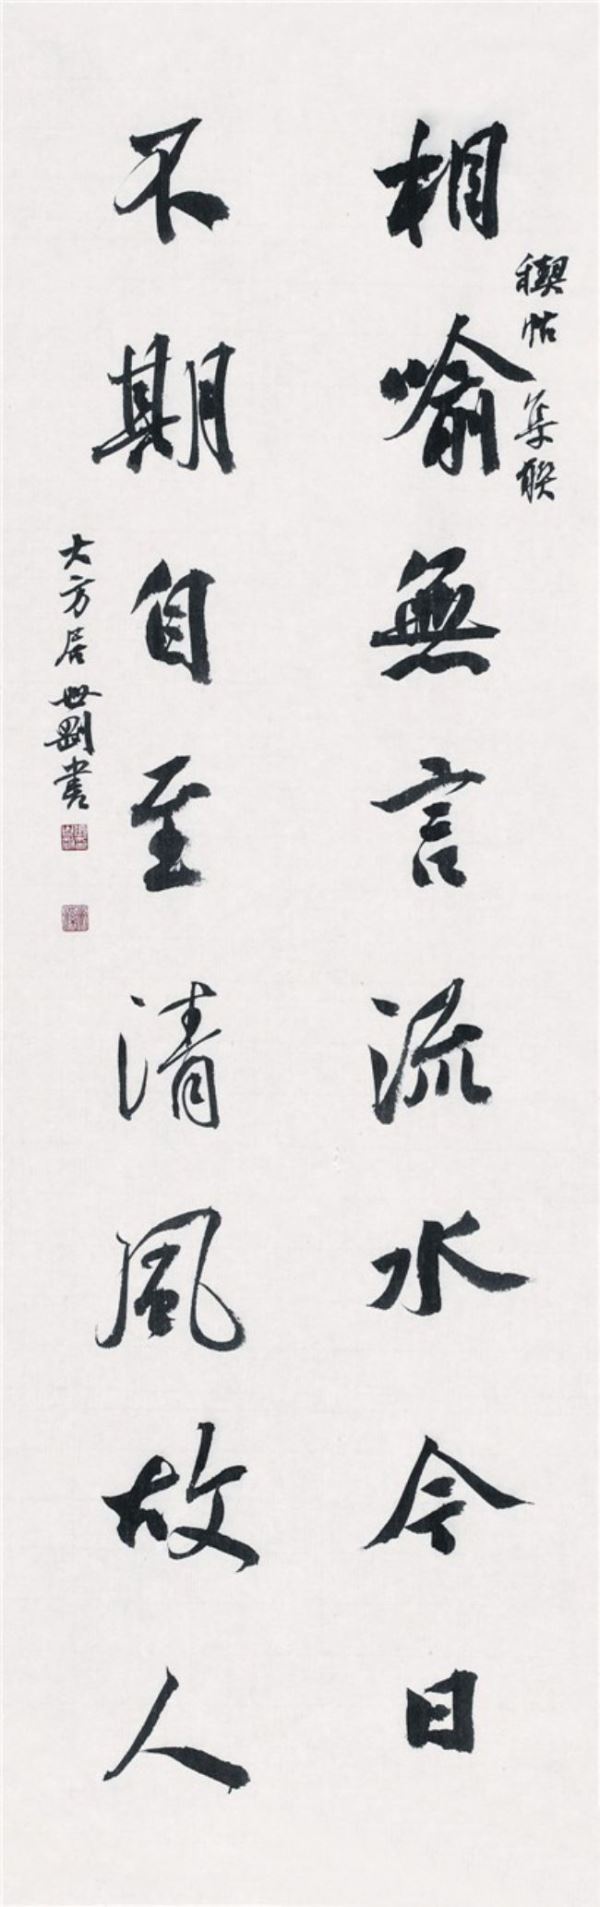 相喻無言流水今日
禊帖 集聯
不期自至清風故人
大方居世剛書